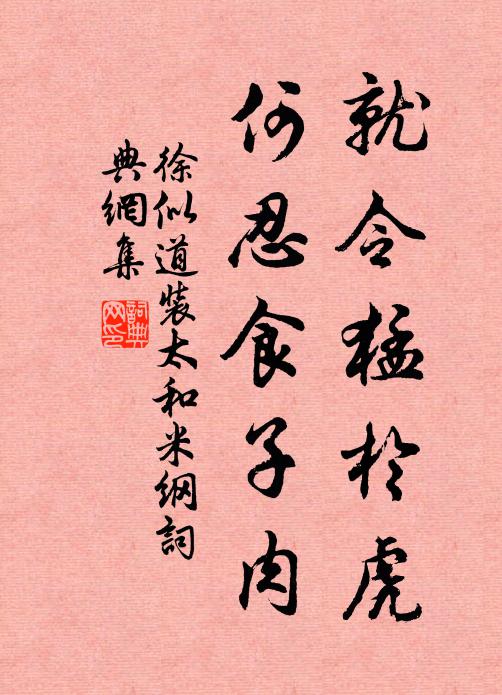 就令猛於虎
何忍食子肉
徐似道裝太和米綱詞
典網集
詞典
网印